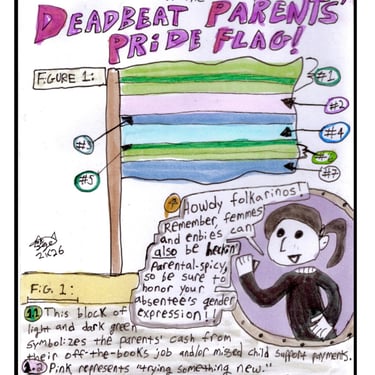 DEADBEAT PARENTS'
PRiDE FLAG!
FiGURE 1:
#1
#2
#3
#4
#5
#7
2K26
Howdy folkarinos!
Remember, femmes
and enbies can
also be heckin'
Parental-spicy,
so be sure to
honor your
absentee's gender
expression!!
FiG. 1:
1.1 This block of
light and dark green
symbolizes the parents' cash from
their off-the-books job and/or missed child support payments.
1.2 Pink represents "trying something new."